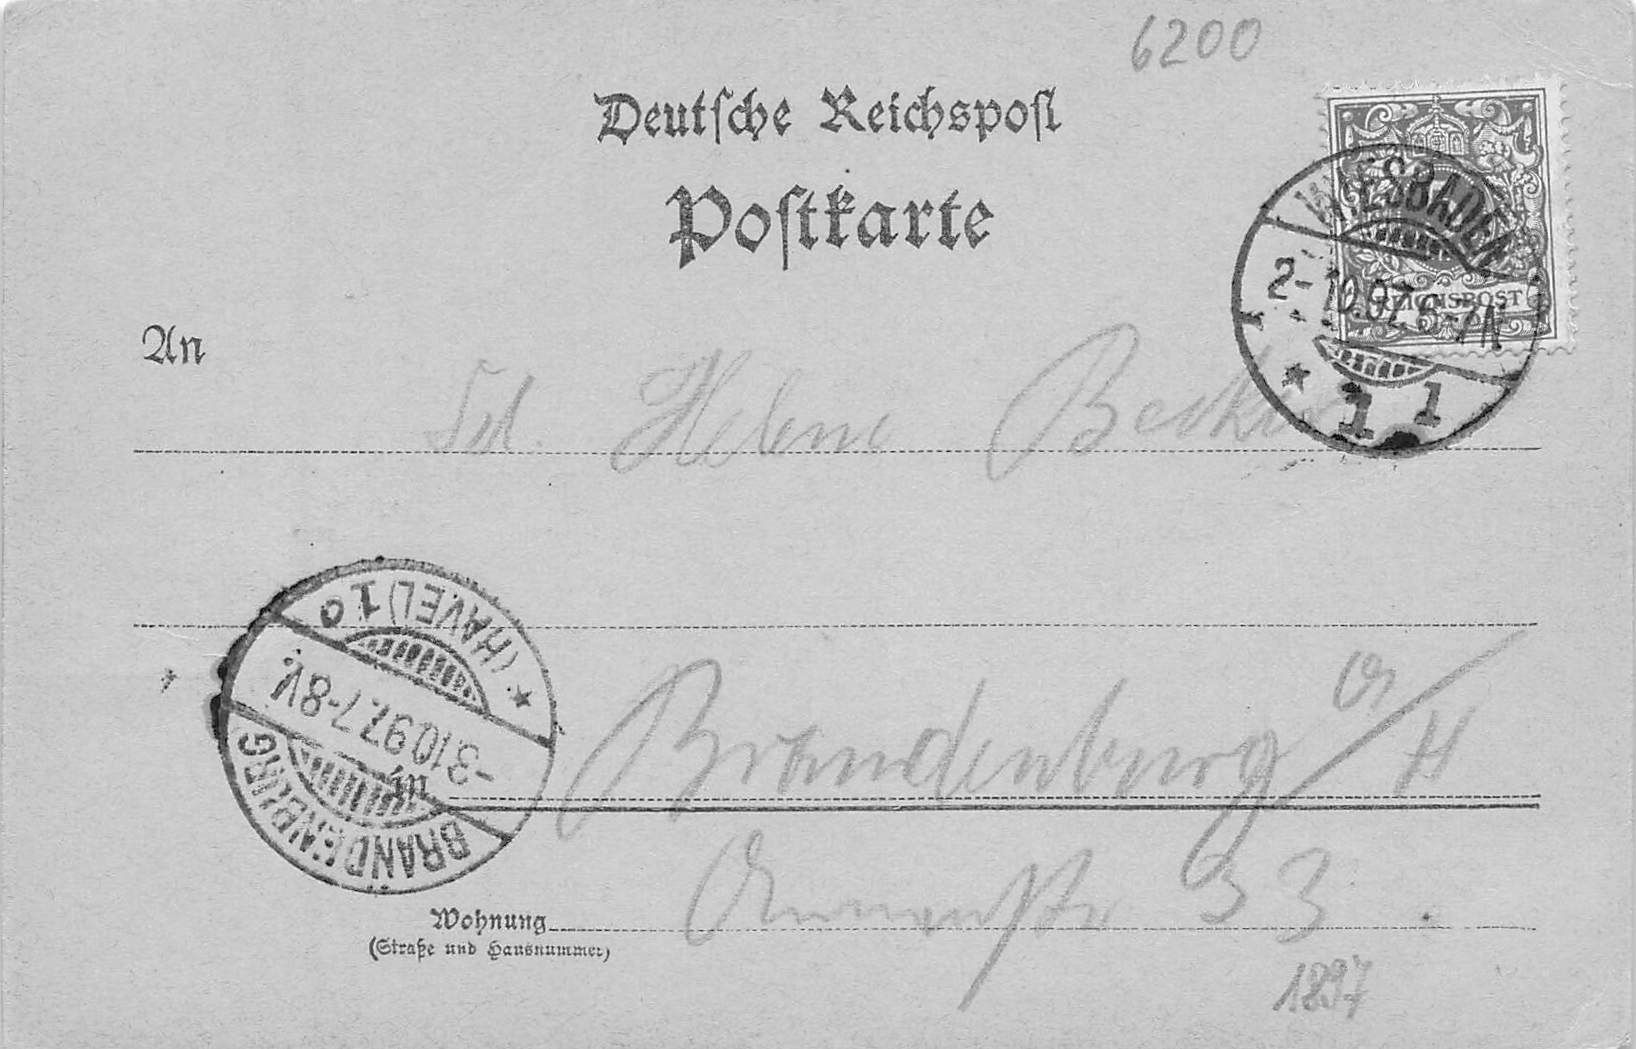 6200
Deutsche Reichspost
Postkarte
REICHSPOST
WIESBADEN
2-10.97. 6-7N
* 1 1
An
Helene Becker
(HAVEL) 1 c
-3.10.97. 7-8V.
BRANDENBURG
in
Brandenburg a/H
Wohnung
Annenstr 33
(Straße und Hausnummer)
1897